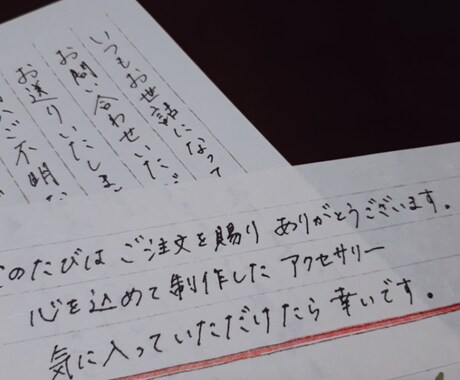 いつもお世話になって
お問い合わせいただ
お送りいたしま
ご不明な
このたびは ご注文を賜り ありがとうございます。
心を込めて制作した アクセサリー
気に入っていただけたら 幸いです。